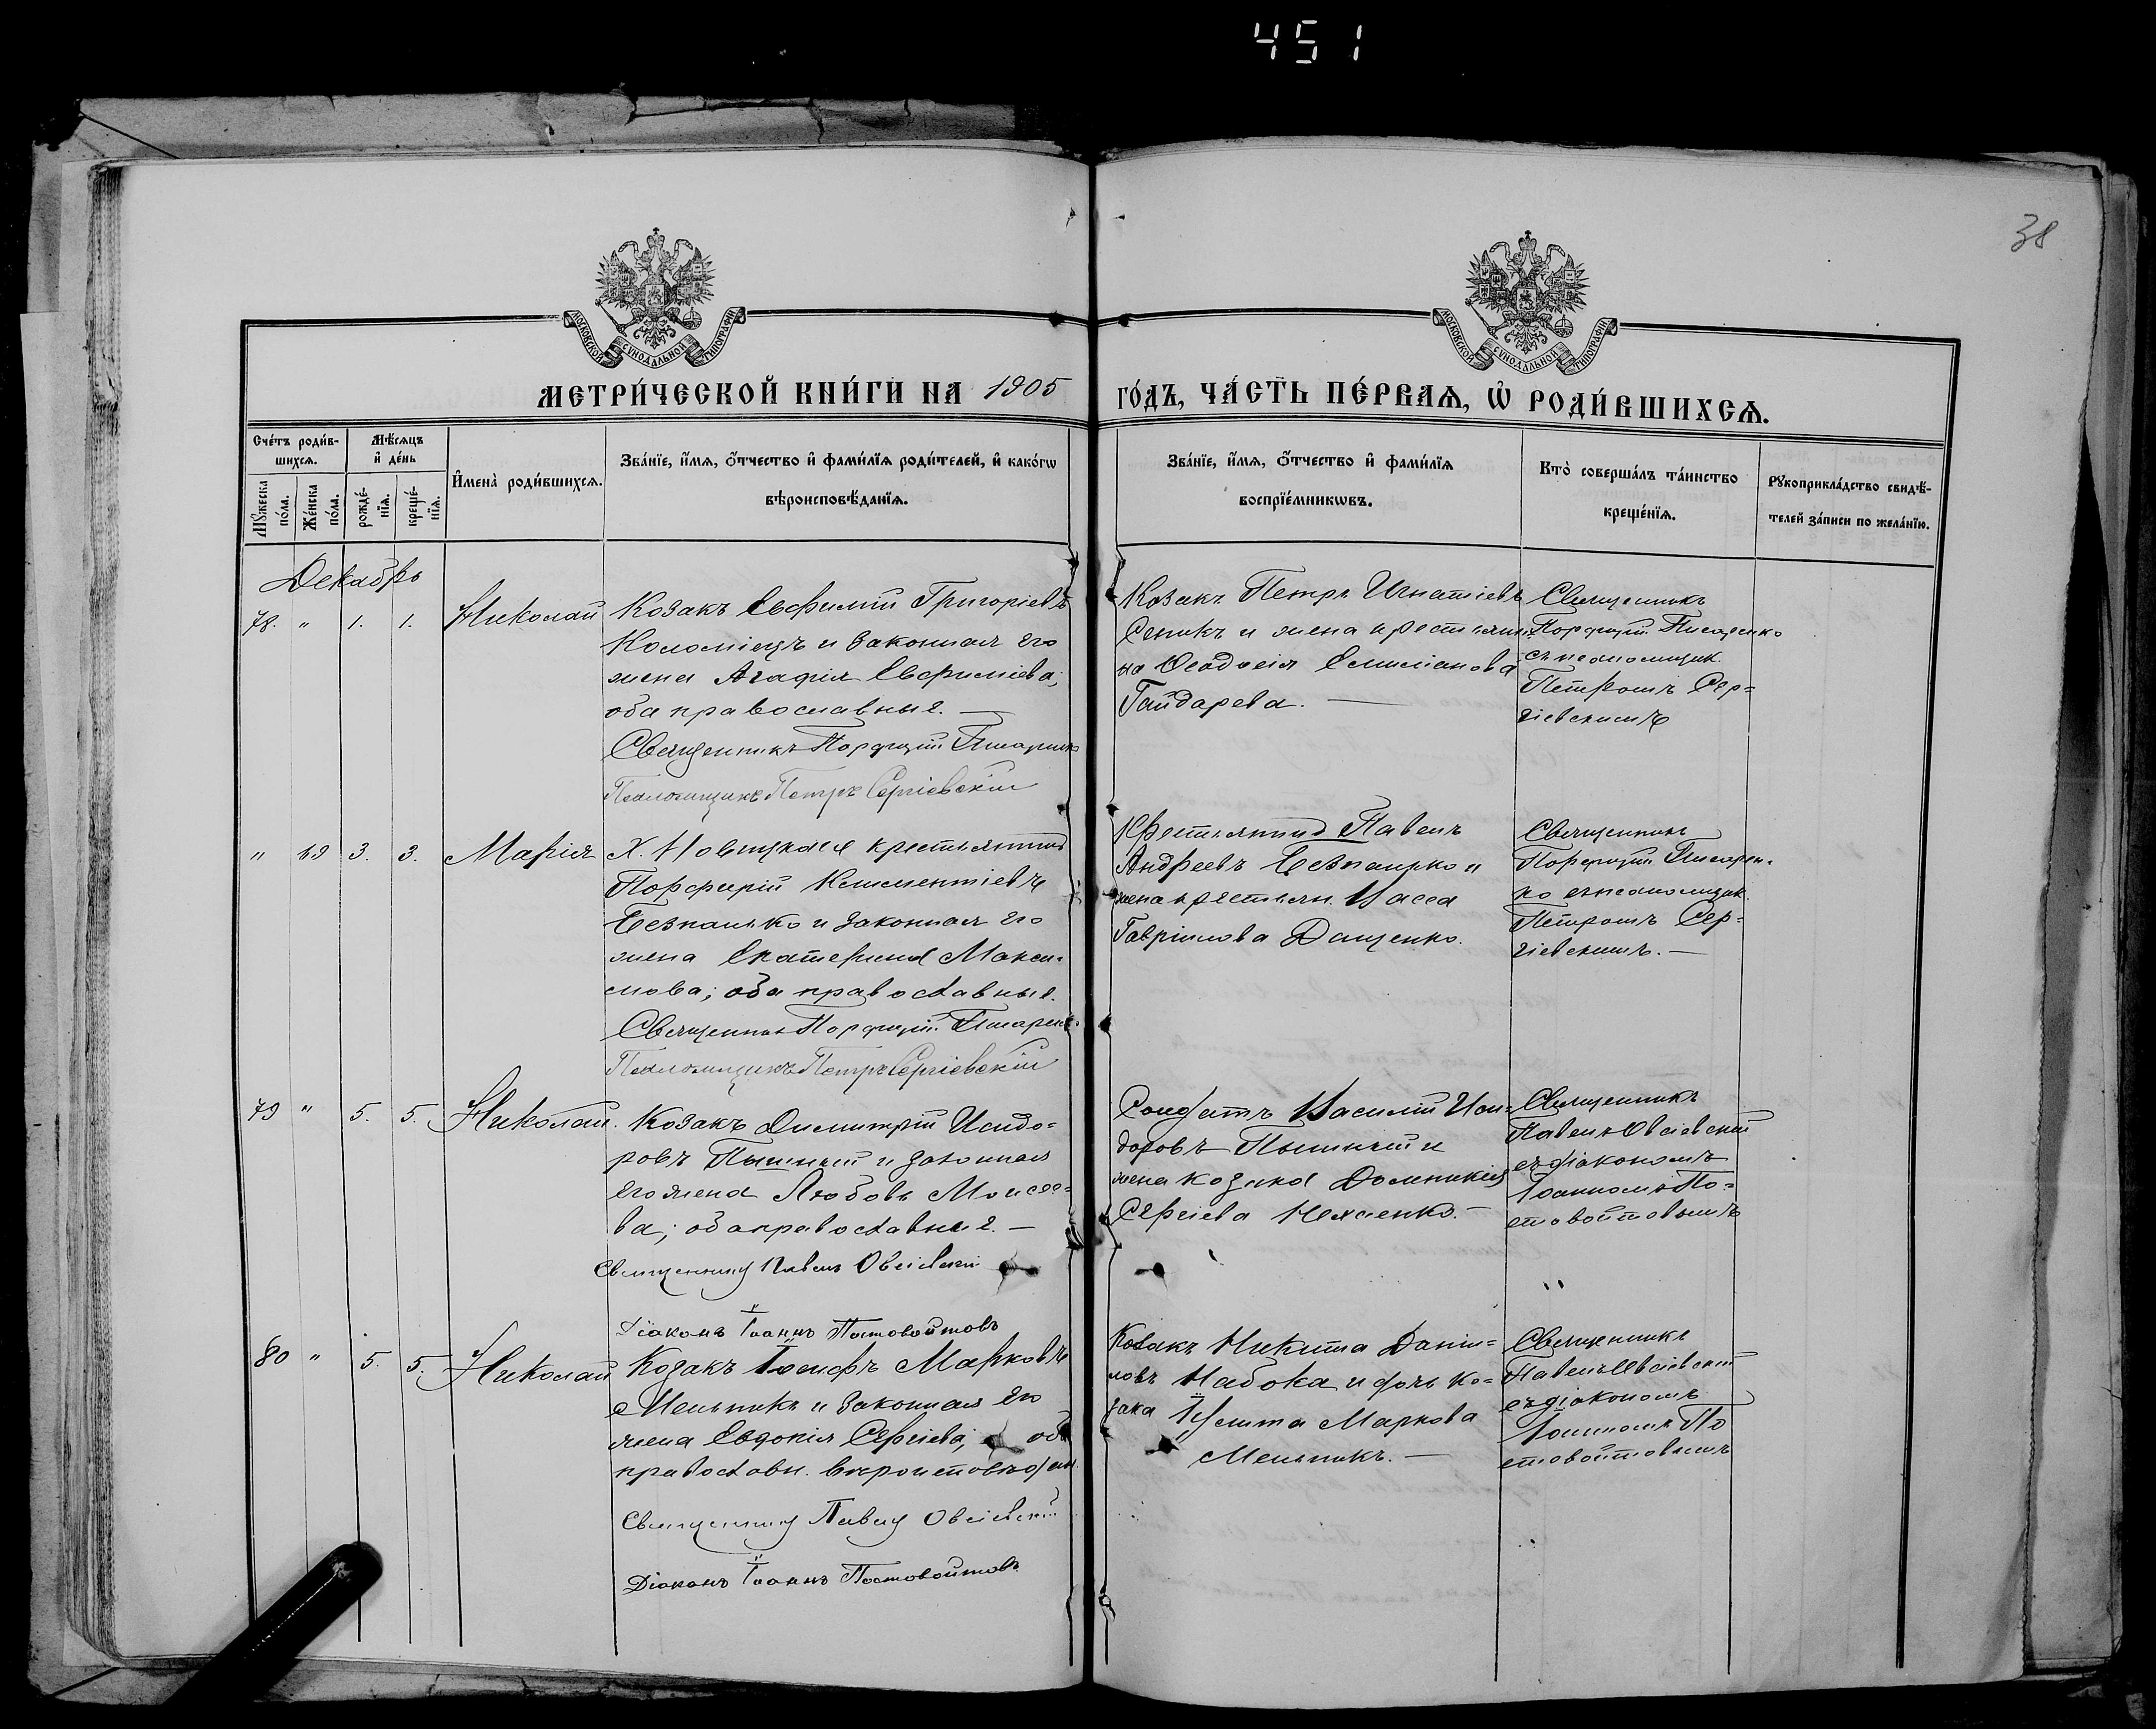 451
38
МОСКОВСКОЙ СУНОДАЛЬНОЙ ТИПОГРАФІИ
МОСКОВСКОЙ СУНОДАЛЬНОЙ ТИПОГРАФІИ
МЕТРИ́ЧЕСКОЙ КНИ́ГИ НА 1905
ГО́ДЪ, ЧА́СТЬ ПЕ́РВАЯ, Ѡ РОДИ́ВШИХСЯ.
Сче́тъ роди́в-
шихся.
Мѣсяцъ
и де́нь
Му́жеска
по́ла.
Же́нска
по́ла.
рожде́-
нїя.
креще́-
нїя.
Имена̀ роди́вшихся.
Зва́нїе, и́мя, о́тчество и фами́лїя роди́телей, и како́гѡ
вѣроисповѣ́данїя.
Зва́нїе, и́мя, о́тчество и фами́лїя
воспрїе́мникѡвъ.
Кто̀ соверша́лъ та́инство
креще́нїя.
Рукоприкла́дство свидѣ́-
телей за́писи по жела́нїю.
Декабрь
78. " 1. 1. Николай
Козакъ Евфимій Григоріевъ
Коломіецъ и законная его
жена Агафія Евфиміева;
оба православные. —
Священникъ Порфирій Писаренко
Псаломщикъ Петръ Сергіевскій
Козакъ Петръ Игнатіевъ
Сеникъ и жена крестьяни-
на Ѳеодосія Емиліанова
Гайдарева. —
Священникъ
Порфирій Писаренко
съ псаломщик.
Петромъ Сер=
гіевскимъ
" 69 3. 3. Марія
Х. Новицкаго крестьянинъ
Порфирій Климентіевъ
Безпалько и законная его
жена Екатерина Макси-
мова; оба православные.
Священникъ Порфирій Писаренко
Псаломщикъ Петръ Сергіевскій
Крестьянинъ Павелъ
Андреевъ Безпалько и
жена крестьян. Васса
Гавріилова Даценко.
Священникъ
Порфирій Писарен-
ко съ псаломщик.
Петромъ Сер=
гіевскимъ. —
79 " 5. 5. Николай.
Козакъ Димитрій Исидо=
ровъ Пышный и законная
его жена Любовь Моисее=
ва; оба православные. —
Священникъ Павелъ Овсіевскій
Діаконъ Іоаннъ Постовойтовъ
Солдатъ Василій Иси-
доровъ Пышный и
жена козака Домникія
Сергіева —
Священникъ
Павелъ Овсіевскій
съ діакономъ
Іоанномъ По=
стовойтовымъ
80 " 5. 5. Николай
Козакъ Іосифъ Марковъ
Мельникъ и законная его
жена Евдокія Сергіева; оба
православн. вѣроисповѣдан.
Священникъ Павелъ Овсіевскій
Діаконъ Іоаннъ Постовойтовъ
Козакъ Никита Даніи=
ловъ Набока и дочь ко=
зака Іулита Маркова
Мельникъ. —
Священникъ
Павелъ Овсіевскій
съ діакономъ
Іоанномъ По
стовойтовымъ